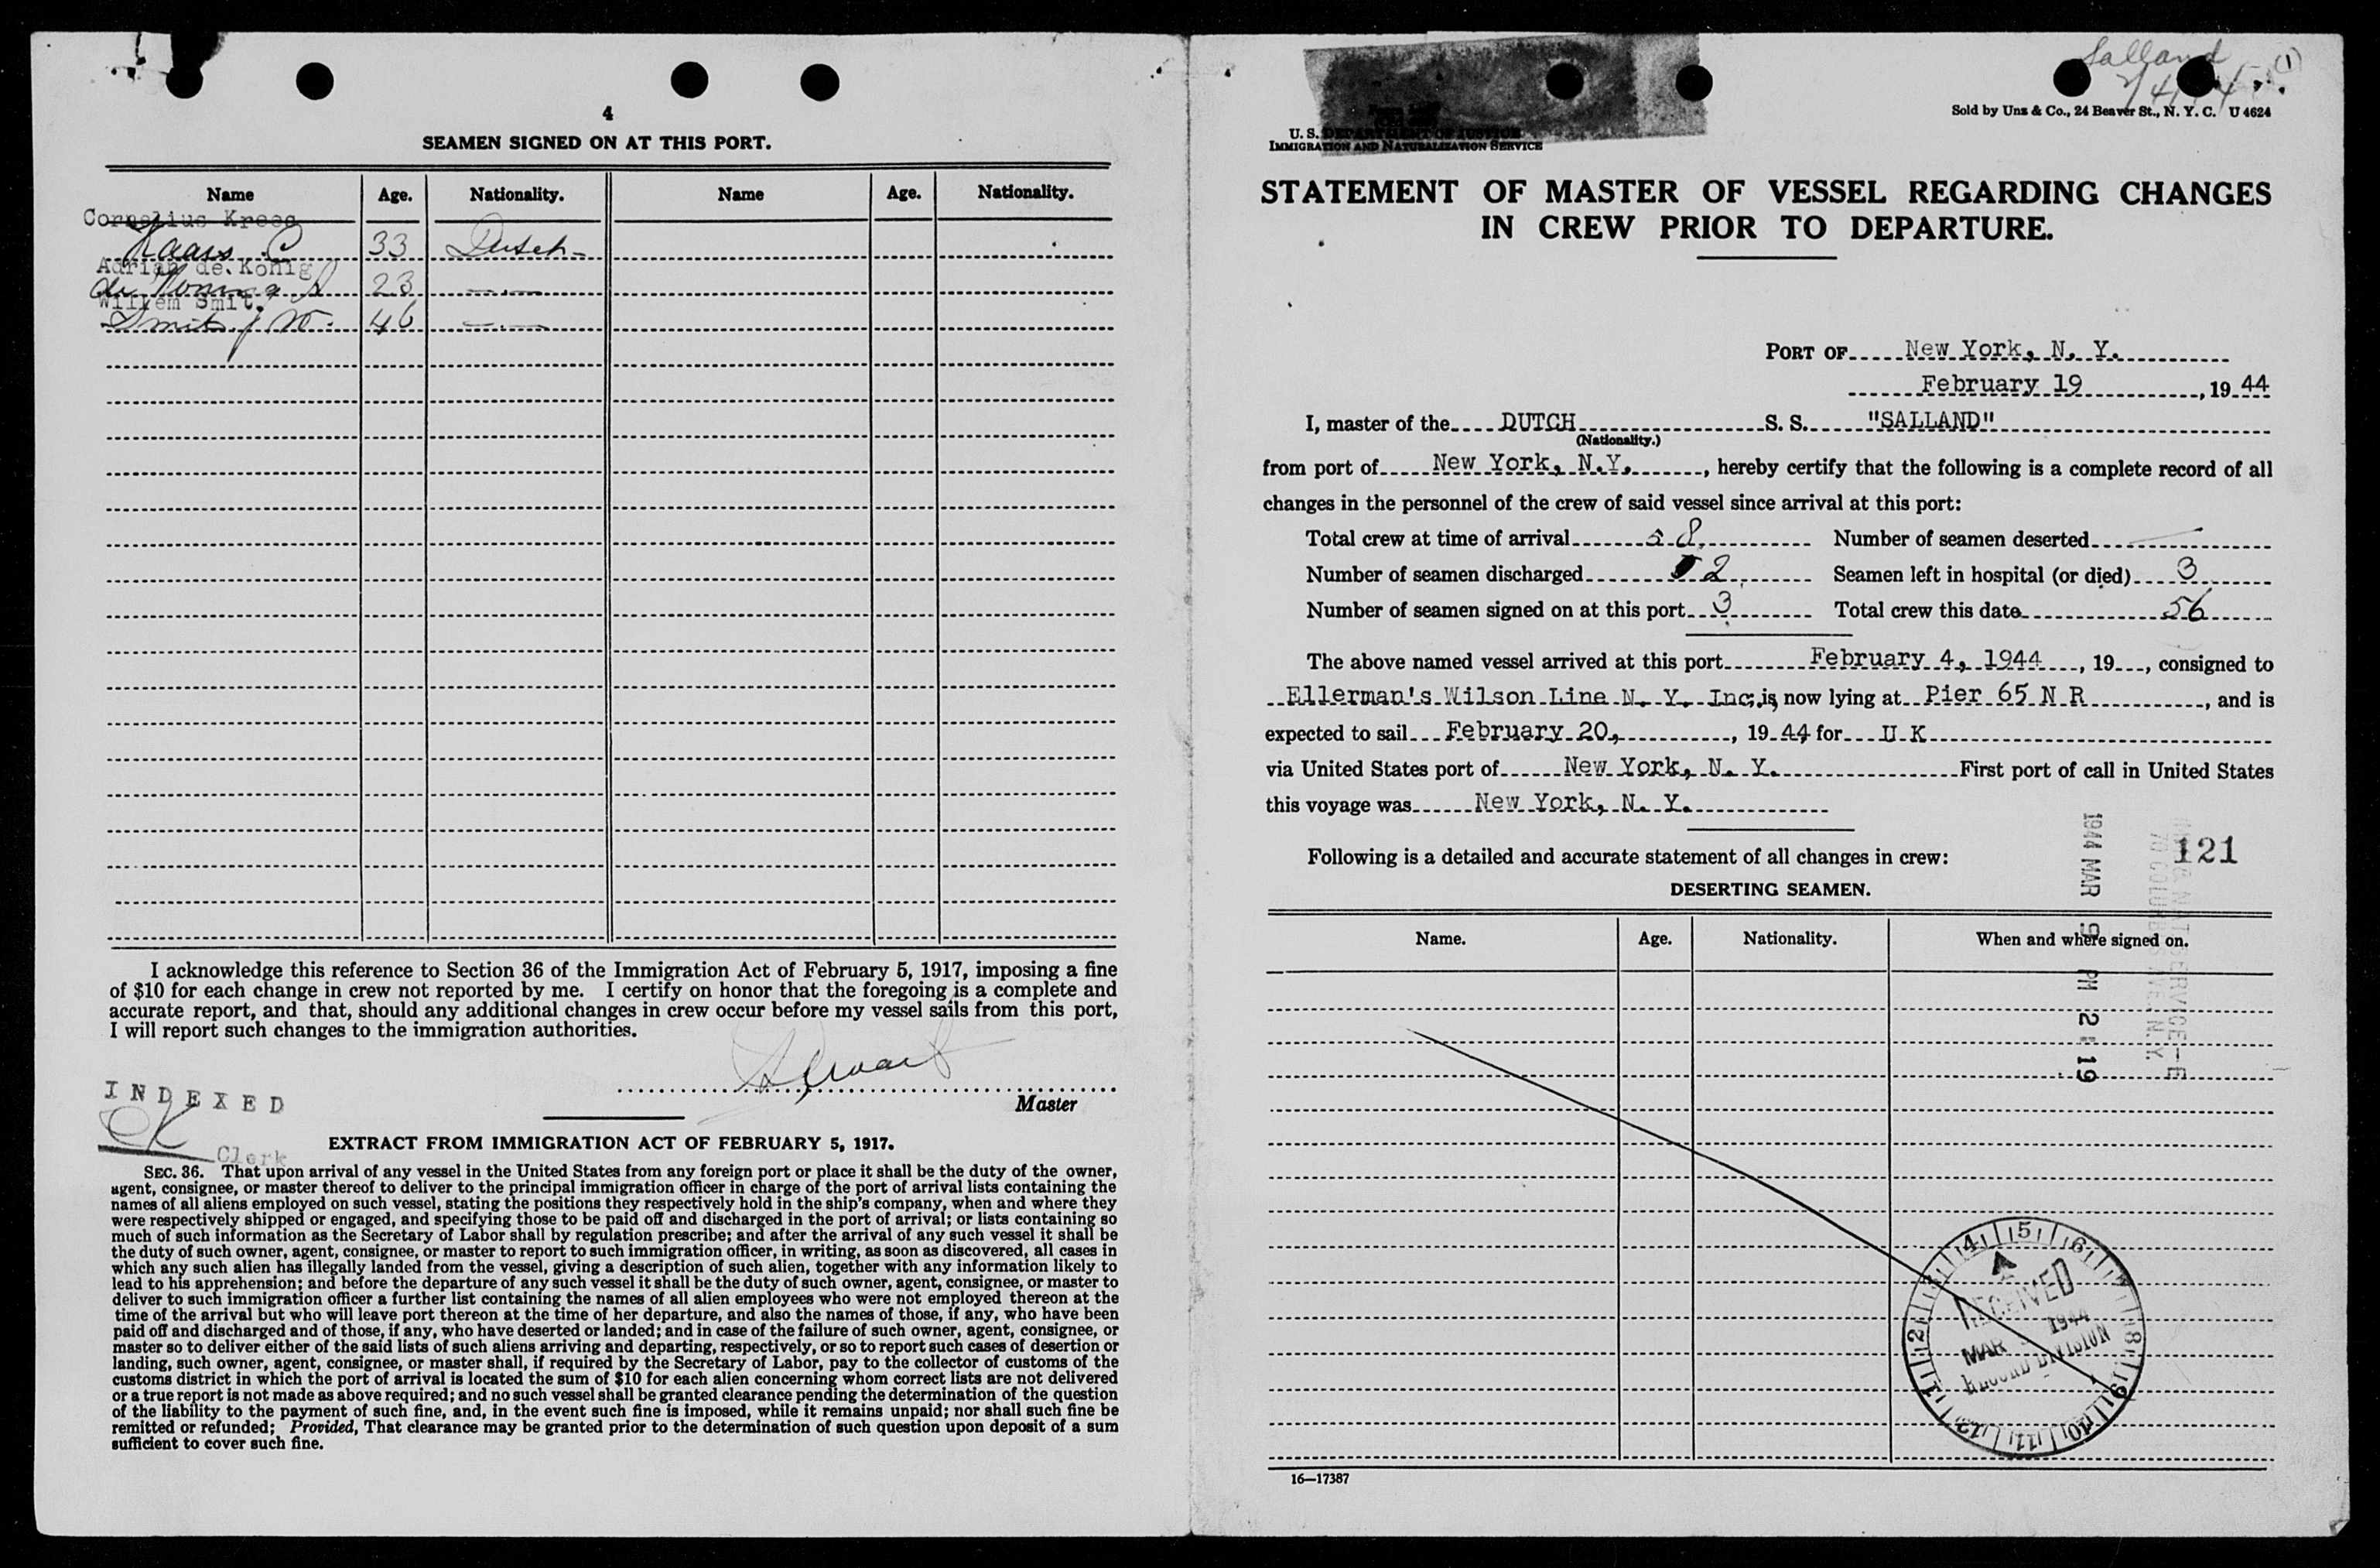 4
SEAMEN SIGNED ON AT THIS PORT.
Name Age. Nationality. Name Age. Nationality.
Cornelius
C 33 Dutch
Adrian de Konig
de Koning A 23 —.—
Willem Smit.
Smit, J W. 46 —.—
I acknowledge this reference to Section 36 of the Immigration Act of February 5, 1917, imposing a fine
of $10 for each change in crew not reported by me. I certify on honor that the foregoing is a complete and
accurate report, and that, should any additional changes in crew occur before my vessel sails from this port,
I will report such changes to the immigration authorities.
Master
INDEXED
Clerk
EXTRACT FROM IMMIGRATION ACT OF FEBRUARY 5, 1917.
SEC. 36. That upon arrival of any vessel in the United States from any foreign port or place it shall be the duty of the owner,
agent, consignee, or master thereof to deliver to the principal immigration officer in charge of the port of arrival lists containing the
names of all aliens employed on such vessel, stating the positions they respectively hold in the ship's company, when and where they
were respectively shipped or engaged, and specifying those to be paid off and discharged in the port of arrival; or lists containing so
much of such information as the Secretary of Labor shall by regulation prescribe; and after the arrival of any such vessel it shall be
the duty of such owner, agent, consignee, or master to report to such immigration officer, in writing, as soon as discovered, all cases in
which any such alien has illegally landed from the vessel, giving a description of such alien, together with any information likely to
lead to his apprehension; and before the departure of any such vessel it shall be the duty of such owner, agent, consignee, or master to
deliver to such immigration officer a further list containing the names of all alien employees who were not employed thereon at the
time of the arrival but who will leave port thereon at the time of her departure, and also the names of those, if any, who have been
paid off and discharged and of those, if any, who have deserted or landed; and in case of the failure of such owner, agent, consignee, or
master so to deliver either of the said lists of such aliens arriving and departing, respectively, or so to report such cases of desertion or
landing, such owner, agent, consignee, or master shall, if required by the Secretary of Labor, pay to the collector of customs of the
customs district in which the port of arrival is located the sum of $10 for each alien concerning whom correct lists are not delivered
or a true report is not made as above required; and no such vessel shall be granted clearance pending the determination of the question
of the liability to the payment of such fine, and, in the event such fine is imposed, while it remains unpaid; nor shall such fine be
remitted or refunded; Provided, That clearance may be granted prior to the determination of such question upon deposit of a sum
sufficient to cover such fine.
Salland (1)
Sold by Unz & Co., 24 Beaver St., N. Y. C. U 4624
U. S. DEPARTMENT OF JUSTICE
IMMIGRATION AND NATURALIZATION SERVICE
STATEMENT OF MASTER OF VESSEL REGARDING CHANGES
IN CREW PRIOR TO DEPARTURE.
PORT OF New York, N. Y.
February 19, 1944
I, master of the DUTCH S. S. "SALLAND"
(Nationality.)
from port of New York, N.Y., hereby certify that the following is a complete record of all
changes in the personnel of the crew of said vessel since arrival at this port:
Total crew at time of arrival 58. Number of seamen deserted —
Number of seamen discharged 2 Seamen left in hospital (or died) 3
Number of seamen signed on at this port 3 Total crew this date 56
The above named vessel arrived at this port February 4, 1944, 19 , consigned to
Ellerman's Wilson Line N. Y. Inc; is now lying at Pier 65 N R, and is
expected to sail February 20, , 19 44 for U K
via United States port of New York, N. Y. First port of call in United States
this voyage was New York, N. Y.
121
Following is a detailed and accurate statement of all changes in crew:
DESERTING SEAMEN.
Name. Age. Nationality. When and where signed on.
1944 MAR 9 PM 2 19
RECEIVED
MAR 1944
RECORD DIVISION
16—17387